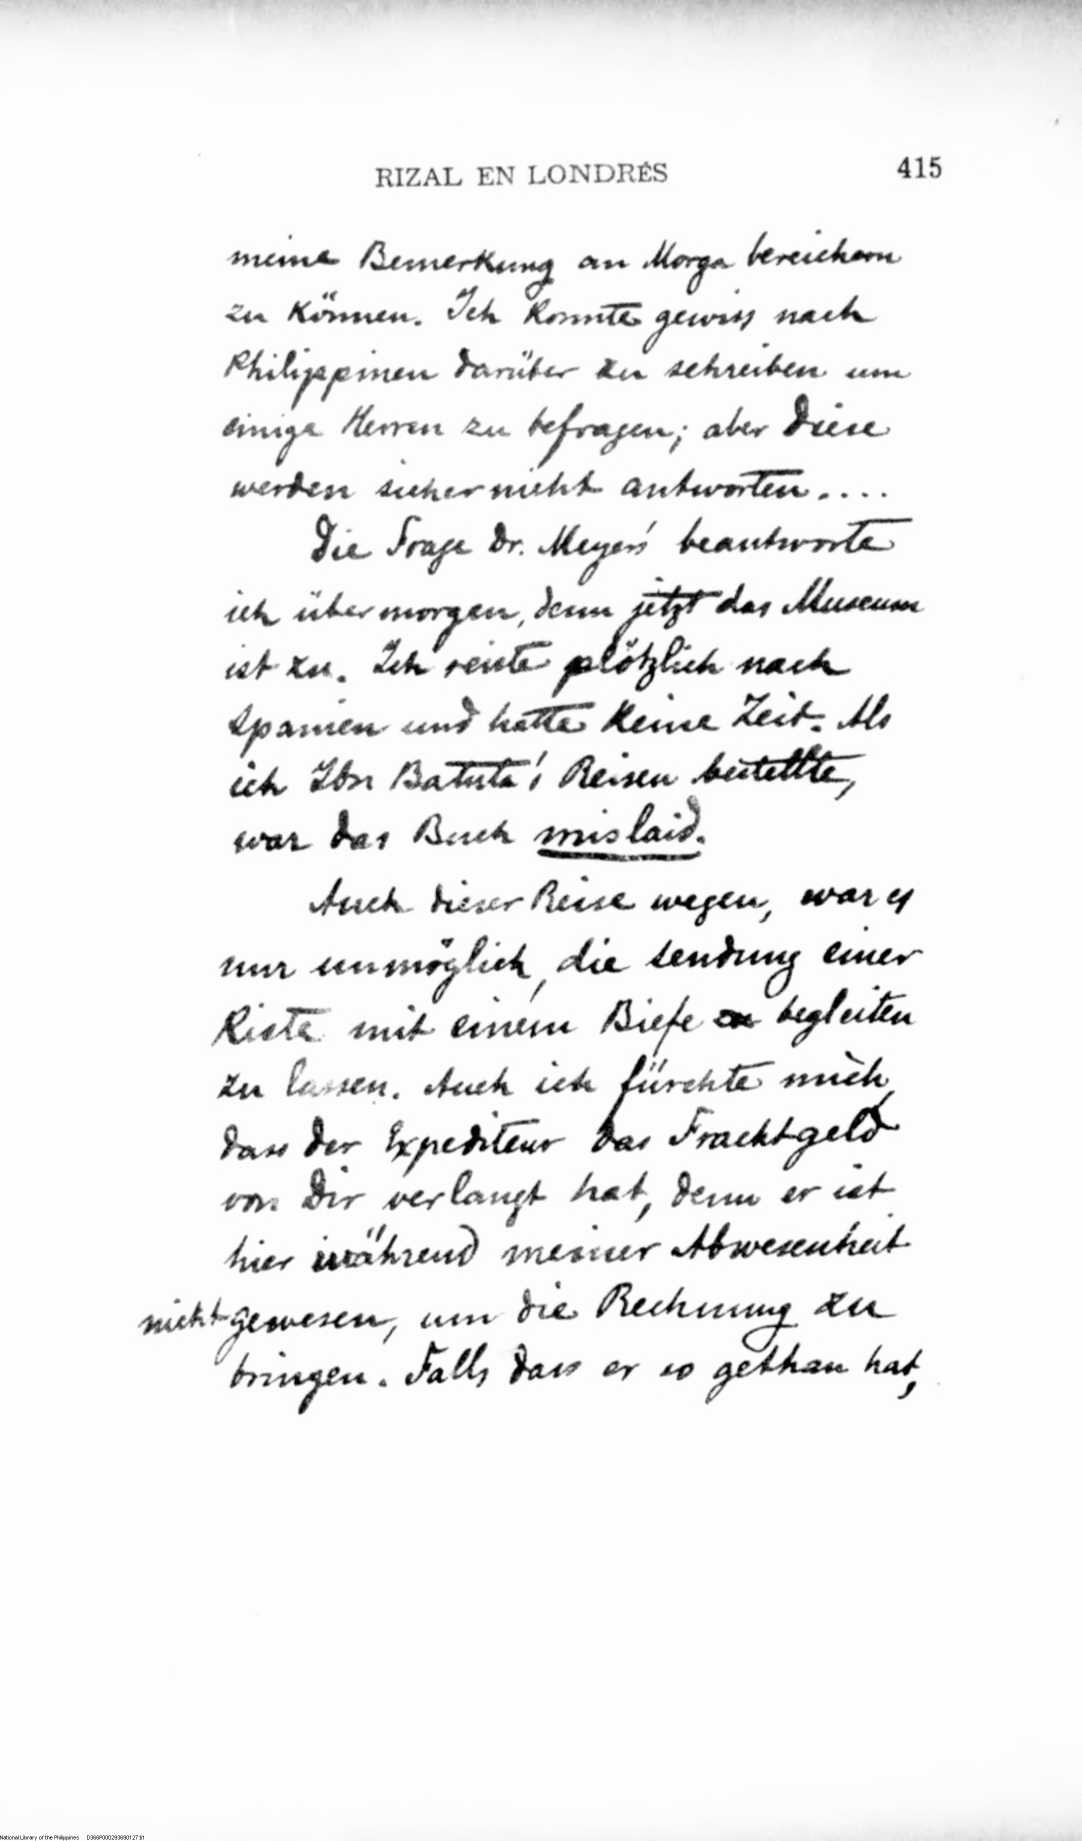 RIZAL EN LONDRÉS 415
meine Bemerkung an Morga bereichern
zu können. Ich konnte gewiss nach
Philippinen darüber zu schreiben um
einige Herren zu befragen; aber diese
werden sicher nicht antworten....
Die Frage Dr. Meyers' beantworte
ich übermorgen, denn jetzt das Museum
ist zu. Ich reiste plötzlich nach
Spanien und hatte keine Zeit. Als
ich Ibn Batuta's Reisen bestellte,
war das Buch mislaid.
Auch dieser Reise wegen, war es
nur unmöglich, die sendung einer
Kiste mit einem Biefe zu begleiten
zu lassen. Auch ich fürchte mich,
dass der Expediteur das Frachtgeld
von Dir verlangt hat, denn er ist
hier während meiner Abwesenheit
nicht gewesen, um die Rechnung zu
bringen. Falls dass er so gethan hat,
National Library of the Philippines